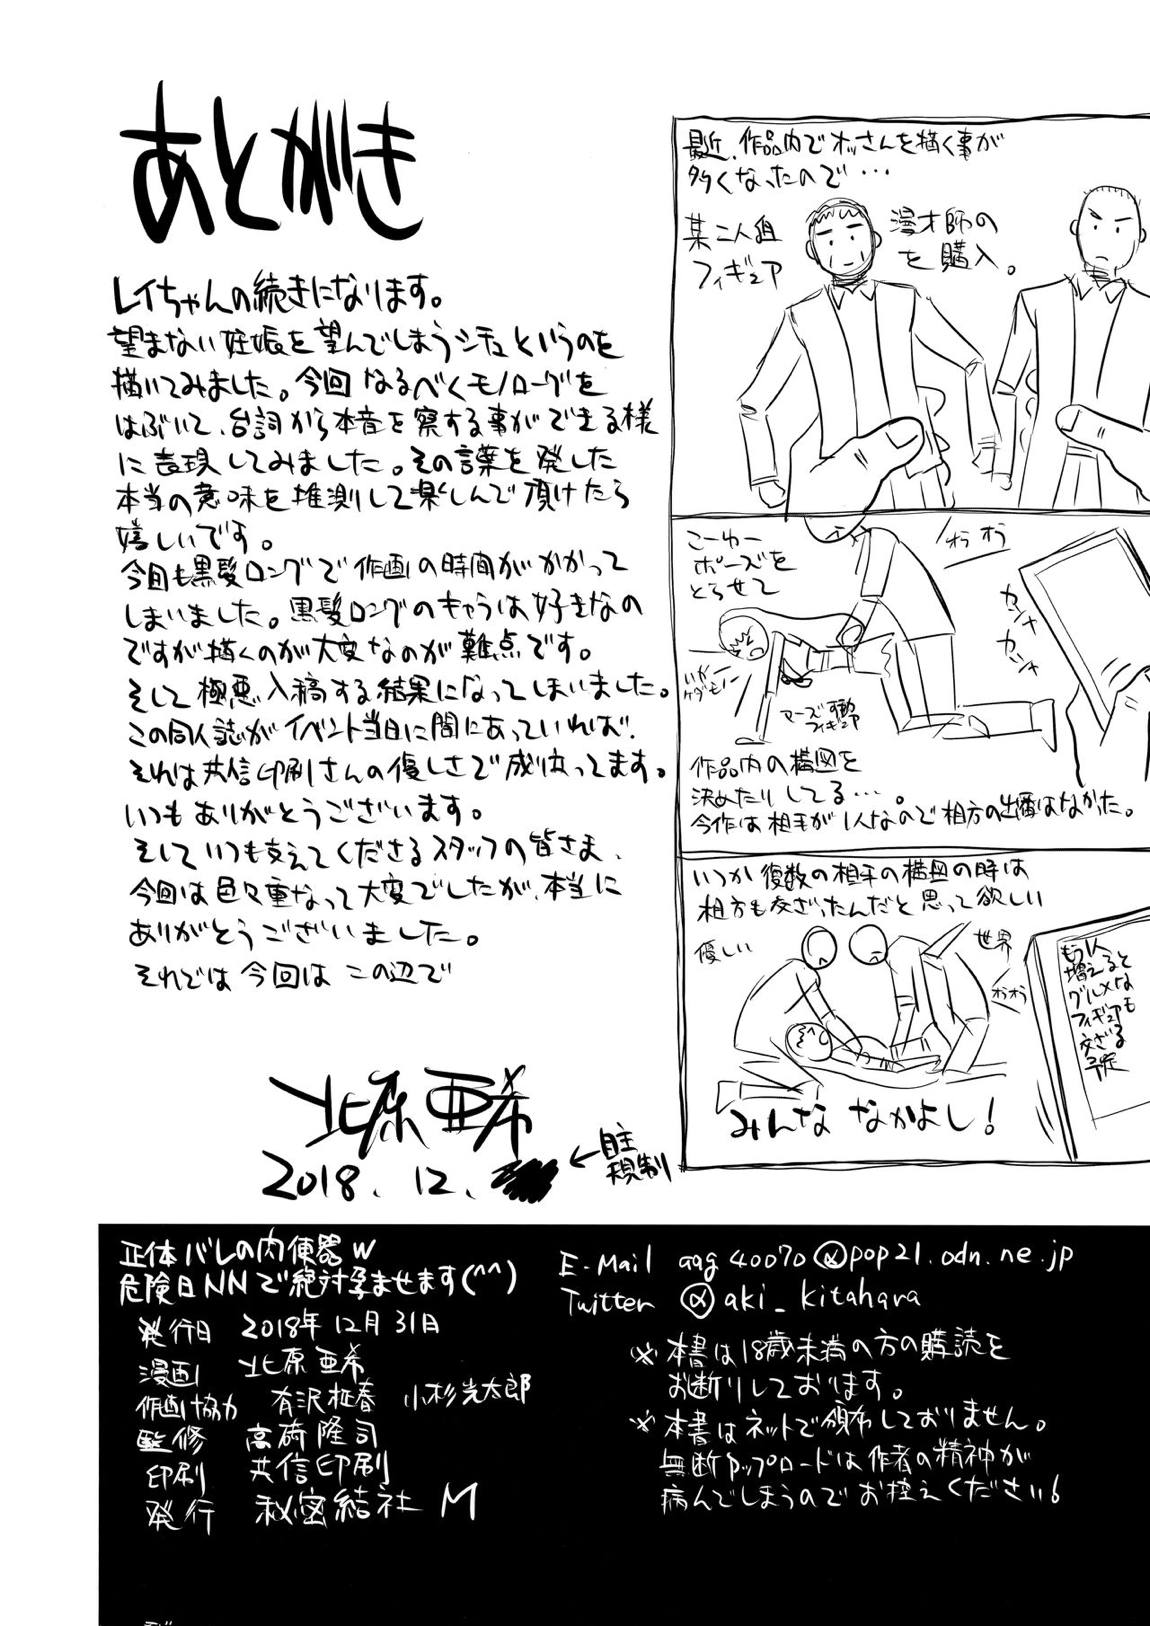 あとがき
レイちゃんの続きになります。
望まない妊娠を望んでしまうシチュというのを
描いてみました。今回なるべくモノローグを
はぶいて、台詞から本音を察する事ができる様
に表現してみました。その言葉を発した
本当の意味を推測して楽しんで頂けたら
嬉しいです。
今回も黒髪ロングで作画の時間がかかって
しまいました。黒髪ロングのキャラは好きなの
ですが描くのが大変なのが難点です。
そして極悪入稿する結果になってしまいました。
この同人誌がイベント当日に間にあっていれば、
それは共信印刷さんの優しさで成り立ってます。
いつもありがとうございます。
そしていつも支えてくださるスタッフの皆さま、
今回は色々重なって大変でしたが、本当に
ありがとうございました。
それでは今回はこの辺で
北原亜希
2018.12.
←自主
規制
最近、作品内でオッさんを描く事が
多くなったので…
某二人組 漫才師の
フィギュア を購入。
こーゆー
ポーズを
とらせて
オラオラ
カシャ
カシャ
いやー
ケダモノー
可動
フィギュア
作品内の構図を
決めたりしてる…。
今作は相手が1人なので相方の出番はなかった。
いつか複数の相手の構図の時は
相方も交ざったんだと思って欲しい
優しい
世界
オラオラ
もう1人
増えると
グルメな
フィギュアも
交ざる
予定
みんななかよし!
正体バレの肉便器w
危険日NNで絶対孕ませます(^^)
発行日 2018年12月31日
漫画 北原亜希
作画協力 有沢柾春 小杉光太郎
監修 高崎隆司
印刷 共信印刷
発行 秘密結社M
E-Mail aag40070@pop21.odn.ne.jp
Twitter @aki_kitahara
※本書は18歳未満の方の購読を
お断りしております。
※本書はネットで頒布しておりません。
無断アップロードは作者の精神が
病んでしまうのでお控えください!